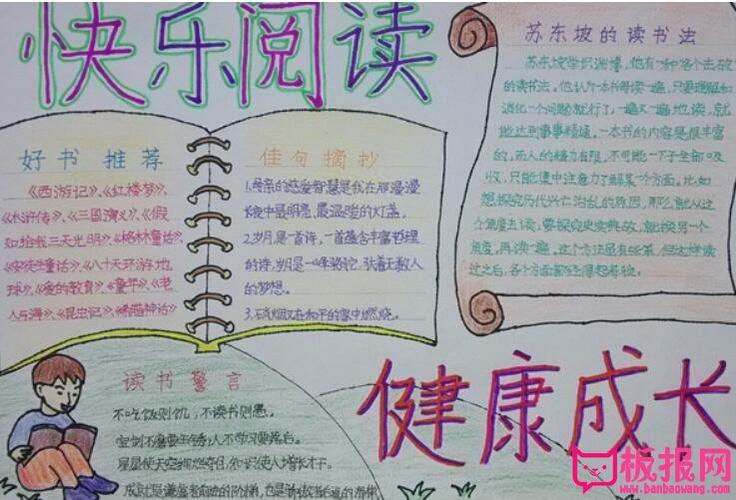 快乐阅读
好书推荐
《西游记》、《红楼梦》、
《水浒传》、《三国演义》、《假
如给我三天光明》、《格林童话》、
《安徒生童话》、《八十天环游地
球》、《爱的教育》、《童年》、《老
人与海》、《昆虫记》、《希腊神话》
佳句摘抄
1.母亲的慈爱智慧是我在那漫漫
长夜中最明亮、最温暖的灯盏。
2.岁月是一首诗,一首蕴含丰富哲理
的诗,岁月是一峰骆驼,驮着无数人
的梦想。
3.硝烟又在和平的家中燃烧。
苏东坡的读书法
苏东坡学识渊博,他有一种各个击破
的读书法。他认为一本书每读一遍,只要理解和
消化一个问题就行了,一遍又一遍地读,就
能达到事事精通。一本书的内容是很丰富
的,而人的精力有限,不可能一下子全部吸
收,只能集中注意力了解某一个方面。比如
想探究历代兴亡治乱的原因,那么就从这
个角度去读;要探究史实典故,就换另一个
角度,再读一遍。这个方法虽有些笨,但这样读
过之后,各个方面都
读书警言
不吃饭则饥,不读书则愚。
人不学习要落后。
星星使天空
成就是
健康成长
板报网
www.banbaowang.com